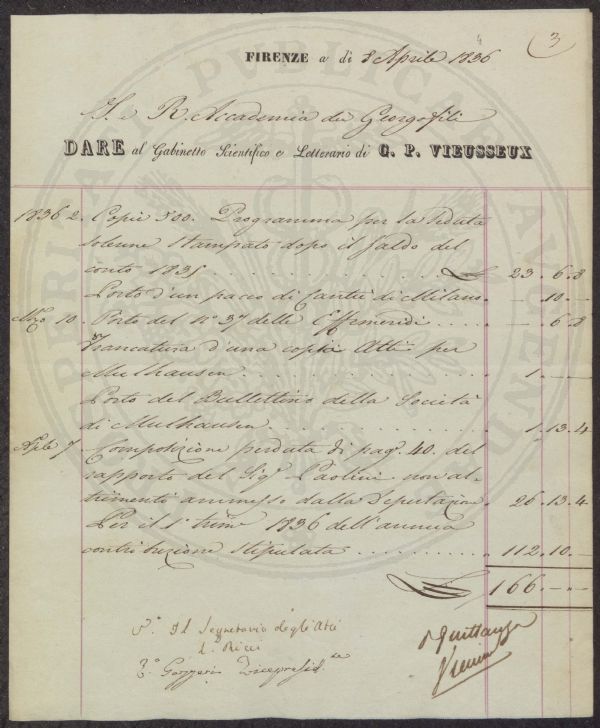 3
FIRENZE a dì 8 Aprile 1836
I. e R. Accademia dei Georgofili
DARE al Gabinetto Scientifico e Letterario di G. P. VIEUSSEUX
1836 2. Copie 500. Programma per la Seduta
solenne stampato dopo il saldo del
conto 1835 . . . . £ 23. 6. 8
Porto d'un pacco di Cantù di Milano. —. 10. —
Mzo 10. Porto del n° 37 delle Effemeridi . . . . —. 6. 8
Francatura d'una copia Atti per
Mulhausen . . . . 1. —
Porto del Bullettino della Società
di Mulhausen . . . . 1. 13. 4
Aple 7. Composizione perduta di pag. 40. del
rapporto del Sigr Paolini non al-
trimenti ammesso dalla Deputazione. 26. 13. 4
Per il 1° trime 1836 dell'annua
contribuzione stipulata . . . . 112. 10. —
£ 166. —. —
V° Il Segretario degli Atti
L. Ricci
V° Gazzeri Vicepresid.te
p Quittanza
Vieusseux
IMPERIALIS PUBLICAE AUGENDAE